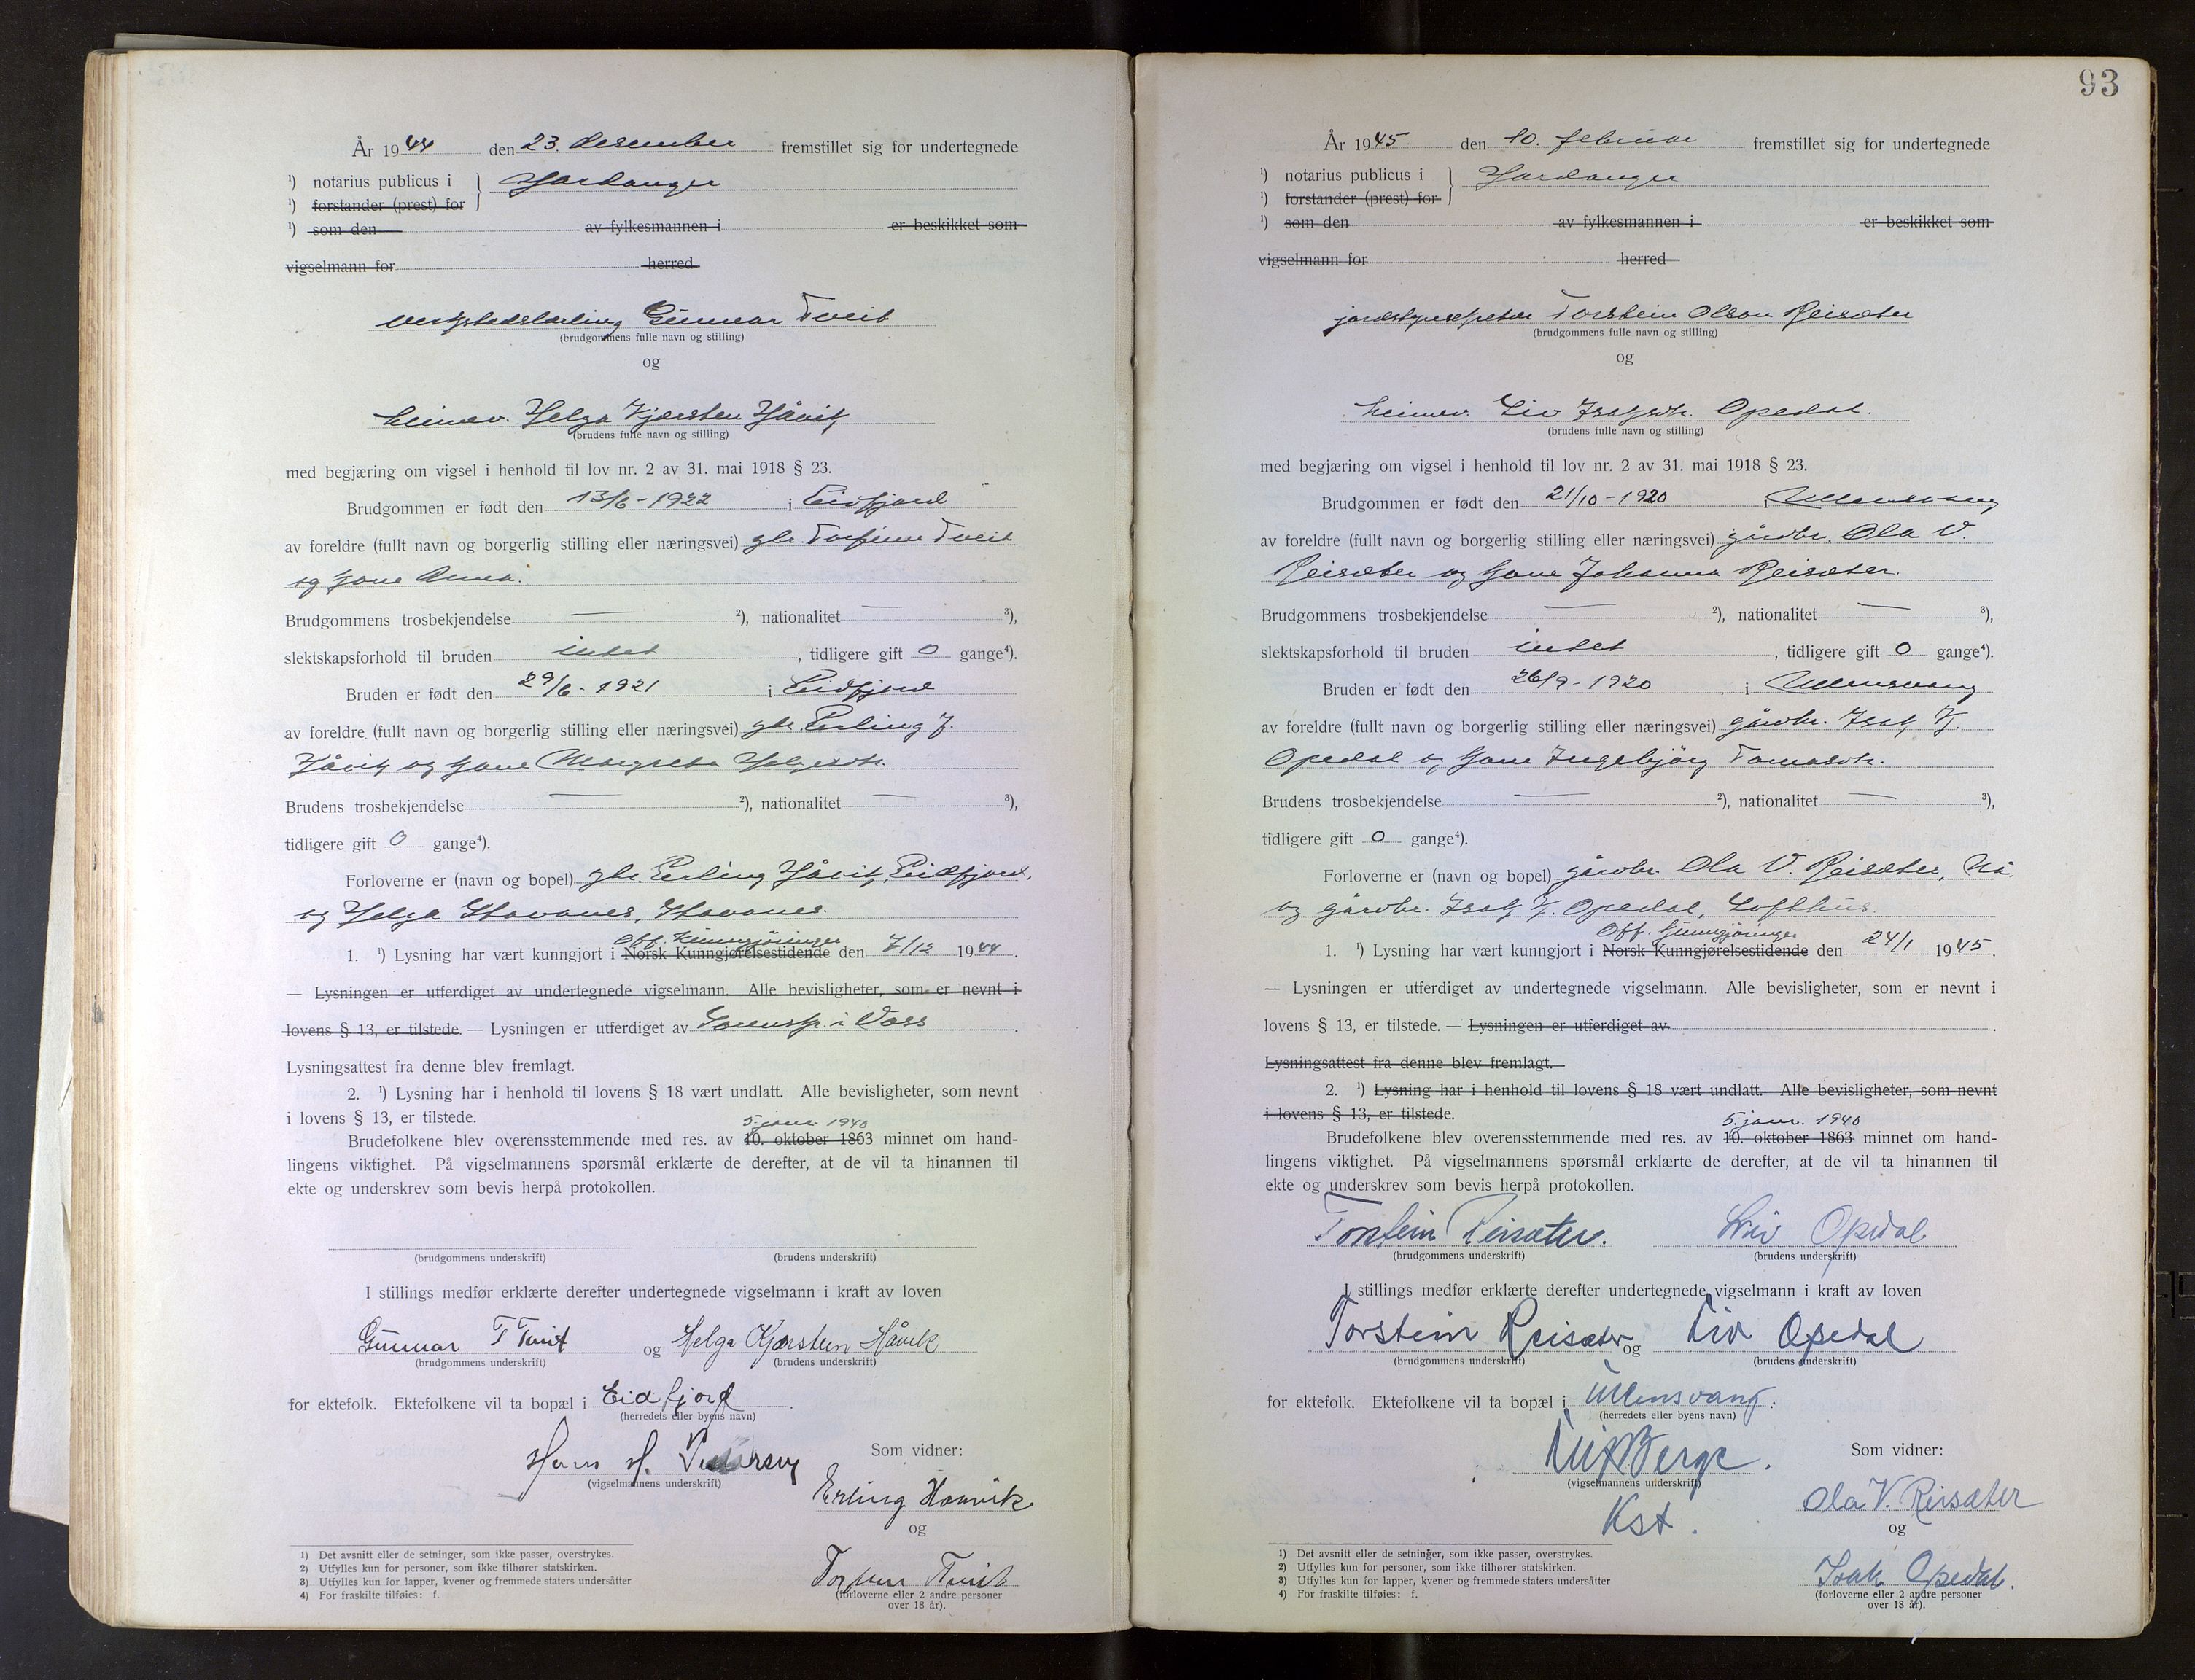 År 1944 den 23. desember fremstillet sig for undertegnede
¹) notarius publicus i } Hardanger
¹) forstander (prest) for
¹) som den av fylkesmannen i er beskikket som
vigselmann for herred
verkstadslærling Gunnar Tveit
(brudgommens fulle navn og stilling)
og
heimev. Helga Kjersten Håvik
(brudens fulle navn og stilling)
med begjæring om vigsel i henhold til lov nr. 2 av 31. mai 1918 § 23.
Brudgommen er født den 13/6-1922 i Eidfjord
av foreldre (fullt navn og borgerlig stilling eller næringsvei) gbr. Torfinn Tveit
og kone Anna.
Brudgommens trosbekjendelse — ²), nationalitet — ³),
slektskapsforhold til bruden intet , tidligere gift 0 gange⁴).
Bruden er født den 29/6-1921 i Eidfjord
av foreldre (fullt navn og borgerlig stilling eller næringsvei) gbr. Erling J.
Håvik og kone Margreta Helgesdtr.
Brudens trosbekjendelse — ²), nationalitet — ³),
tidligere gift 0 gange⁴).
Forloverne er (navn og bopel) gbr. Erling Håvik, Eidfjord,
og Helga Stavanes, Stavanes.
Off. Kunngjøringer
1. ¹) Lysning har vært kunngjort i Norsk Kunngjørelsestidende den 7/12 1944.
— Lysningen er utferdiget av undertegnede vigselmann. Alle bevisligheter, som er nevnt i
lovens § 13, er tilstede. — Lysningen er utferdiget av Sorenskr. i Voss .
Lysningsattest fra denne blev fremlagt.
2. ¹) Lysning har i henhold til lovens § 18 vært undlatt. Alle bevisligheter, som nevnt
i lovens § 13, er tilstede.
5. jan. 1940
Brudefolkene blev overensstemmende med res. av 10. oktober 1863 minnet om hand-
lingens viktighet. På vigselmannens spørsmål erklærte de derefter, at de vil ta hinannen til
ekte og underskrev som bevis herpå protokollen.
(brudgommens underskrift) (brudens underskrift)
I stillings medfør erklærte derefter undertegnede vigselmann i kraft av loven
Gunnar T Tveit og Helga Kjersteen Håvik
(brudgommens underskrift) (brudens underskrift)
for ektefolk. Ektefolkene vil ta bopæl i Eidfjord .
(herredets eller byens navn)
Hans H. Pedersen
(vigselmannens underskrift)
Som vidner:
Erling Haavik
og
Torfinn Tveit
(forloverne eller 2 andre personer
over 18 år).
1) Det avsnitt eller de setninger, som ikke passer, overstrykes.
2) Utfylles kun for personer, som ikke tilhører statskirken.
3) Utfylles kun for lapper, kvener og fremmede staters undersåtter
4) For fraskilte tilføies: f.
93
År 1945 den 10. februar fremstillet sig for undertegnede
¹) notarius publicus i } Hardanger
¹) forstander (prest) for
¹) som den av fylkesmannen i er beskikket som
vigselmann for herred
jordstyresekretær Torstein Olson Reisæter
(brudgommens fulle navn og stilling)
og
heimev. Liv Isaksdtr. Opedal.
(brudens fulle navn og stilling)
med begjæring om vigsel i henhold til lov nr. 2 av 31. mai 1918 § 23.
Brudgommen er født den 21/10-1920 i Ullensvang
av foreldre (fullt navn og borgerlig stilling eller næringsvei) gårdbr. Ola V.
Reisæter og kone Johanna Reisæter.
Brudgommens trosbekjendelse — ²), nationalitet — ³),
slektskapsforhold til bruden intet , tidligere gift 0 gange⁴).
Bruden er født den 26/9-1920 i Ullensvang
av foreldre (fullt navn og borgerlig stilling eller næringsvei) gårdbr. Isak K.
Opedal og kone Ingebjörg Tomasdtr.
Brudens trosbekjendelse — ²), nationalitet — ³),
tidligere gift 0 gange⁴).
Forloverne er (navn og bopel) gårdbr. Ola V. Reisæter, Nå.
og gårdbr. Isak K. Opedal, Lofthus.
Off. kunngjøringer
1. ¹) Lysning har vært kunngjort i Norsk Kunngjørelsestidende den 24/1 1945.
— Lysningen er utferdiget av undertegnede vigselmann. Alle bevisligheter, som er nevnt i
lovens § 13, er tilstede. — Lysningen er utferdiget av .
Lysningsattest fra denne blev fremlagt.
2. ¹) Lysning har i henhold til lovens § 18 vært undlatt. Alle bevisligheter, som nevnt
i lovens § 13, er tilstede.
5. jan. 1940
Brudefolkene blev overensstemmende med res. av 10. oktober 1863 minnet om hand-
lingens viktighet. På vigselmannens spørsmål erklærte de derefter, at de vil ta hinannen til
ekte og underskrev som bevis herpå protokollen.
Torstein Reisæter. Liv Opedal
(brudgommens underskrift) (brudens underskrift)
I stillings medfør erklærte derefter undertegnede vigselmann i kraft av loven
Torstein Reisæter og Liv Opedal
(brudgommens underskrift) (brudens underskrift)
for ektefolk. Ektefolkene vil ta bopæl i Ullensvang .
(herredets eller byens navn)
Berge.
(vigselmannens underskrift)
Kst.
Som vidner:
Ola V. Reisæter
og
Isak Opedal.
(forloverne eller 2 andre personer
over 18 år).
1) Det avsnitt eller de setninger, som ikke passer, overstrykes.
2) Utfylles kun for personer, som ikke tilhører statskirken.
3) Utfylles kun for lapper, kvener og fremmede staters undersåtter
4) For fraskilte tilføies: f.